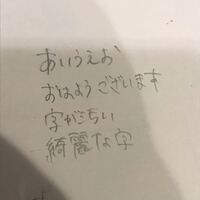 あいうえお
おはようございます
字がごちい
綺麗な字